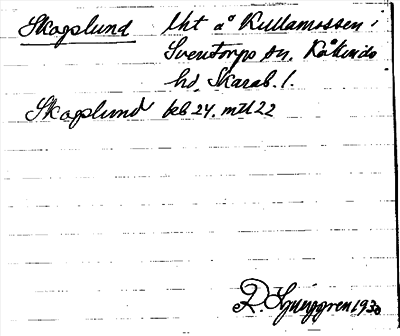 Skogslund lht å Kullamossen i
Sventorps sn, Kåkinds
hd, Skarab. l.
Skogslund beb 24. mtl 22
R. Ljunggren 1930